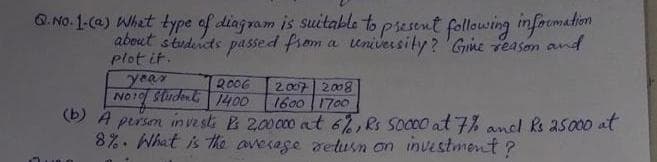 Q.No.1-(a) What type of diagram is suitable to present following information
about students passed from a university? Give reason and
plot it.
year 2006 2007 2008
No: of Student 1400 1600 1700
(b) A person invests Rs 2,00000 at 6%, Rs 50000 at 7% and Rs 25000 at
8%. What is the average return on investment?